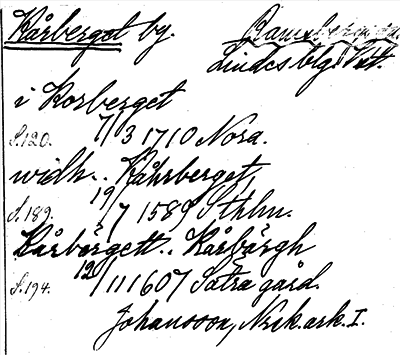 Kårberget by. Ramsbergs sn.
Lindesbgs Västt.
i Korberget
S.120. 7/3 1710 Nora.
widh.. Kåhrberget,
S.189. 19/7 1589 Sthlm.
Kårbärgett.. Kårbärgh
S.194. 120/11 1607 Sätra gård.
Johansson, Nsk.ark. I.